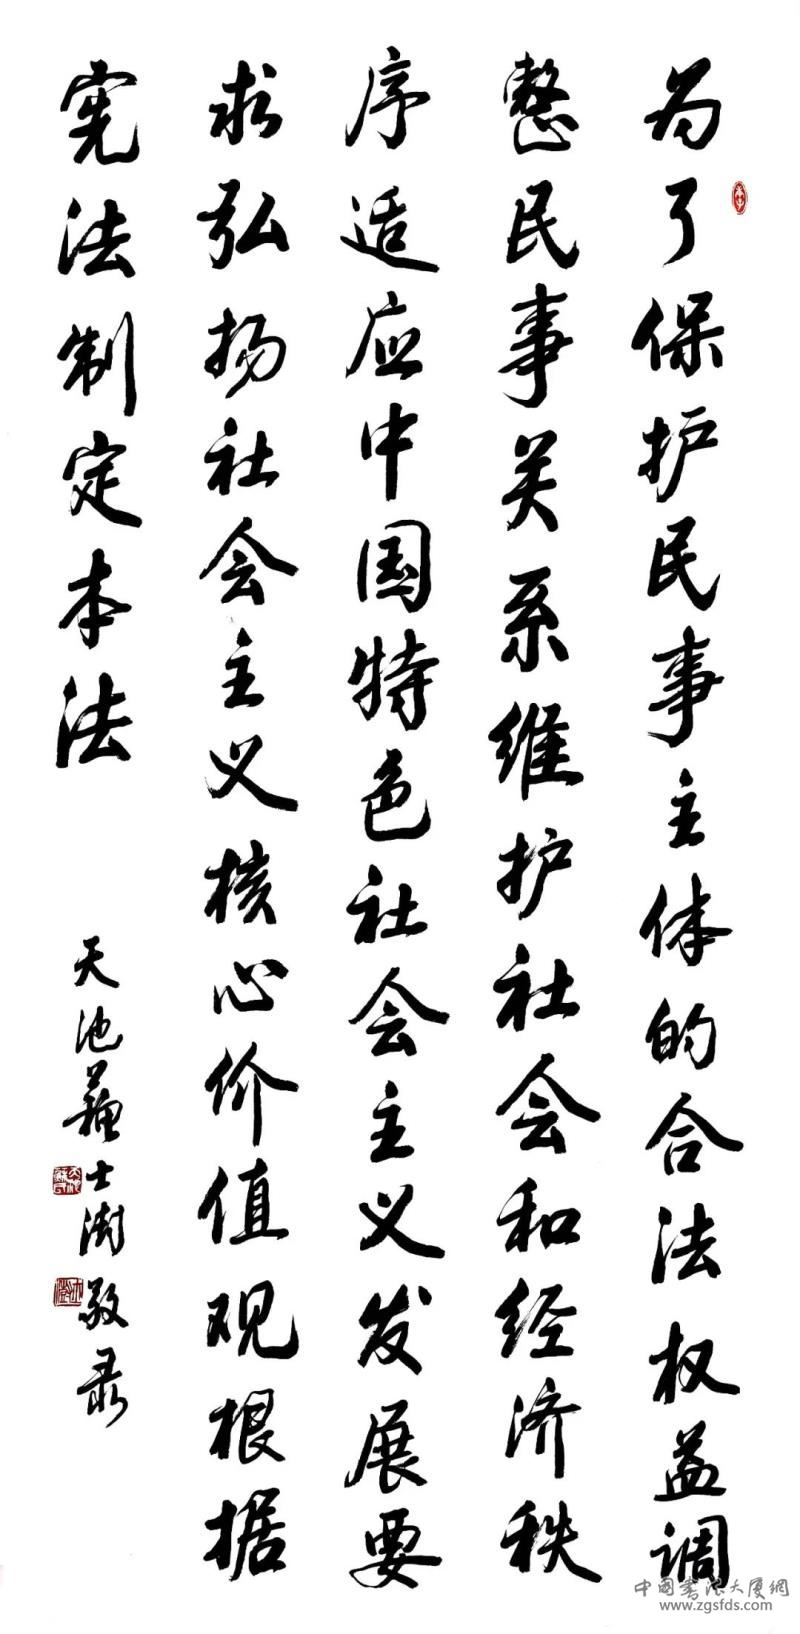 为了保护民事主体的合法权益调
整民事关系维护社会和经济秩
序适应中国特色社会主义发展要
求弘扬社会主义核心价值观根据
宪法制定本法
天池苏士澍敬录
中国书法大厦網
www.zgsfds.com